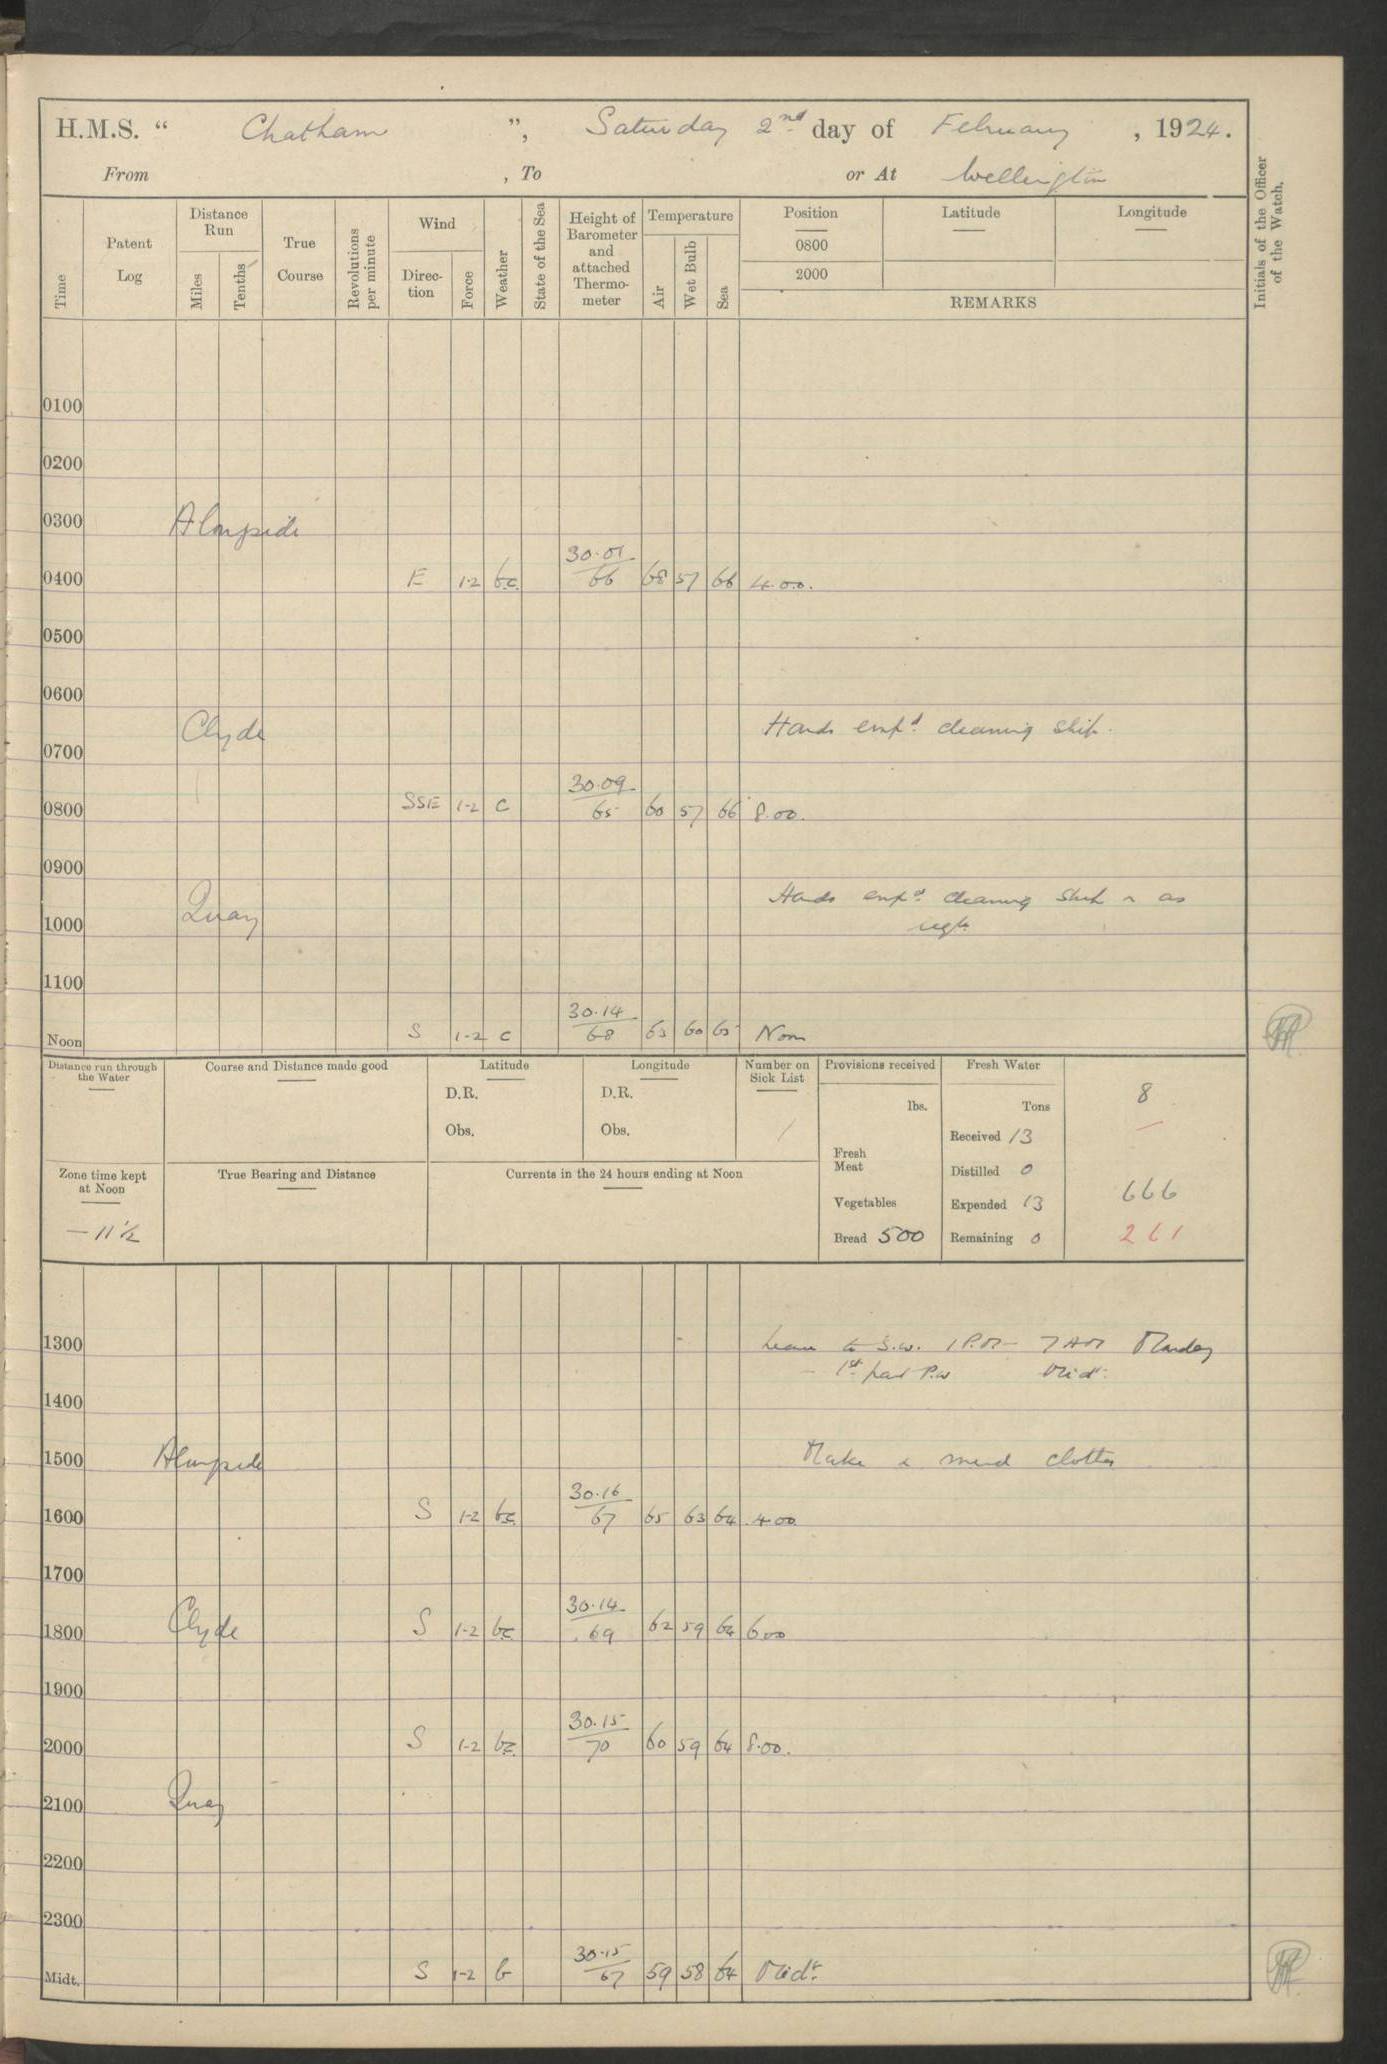 H.M.S. “ Chatham ”, Saturday 2nd day of February , 1924.
From , To or At Wellington
Time
Patent Log
Distance Run
Miles
Tenths
True Course
Revolutions per minute
Wind
Direc- tion
Force
Weather
State of the Sea
Height of Barometer and attached Thermo- meter
Temperature
Air
Wet Bulb
Sea
Position
0800
2000
Latitude
Longitude
REMARKS
Initials of the Officer of the Watch.
0100
0200
0300 Alongside
30.01
0400 E 1-2 bc 66 68 57 66 4.00.
0500
0600
Clyde Hands empd. cleaning ship.
0700
30.09
0800 SSE 1-2 c 65 60 57 66 8.00.
0900
Quay Hands empd. cleaning ship & as
1000 reqd.
1100
30.14
Noon S 1-2 c 68 63 60 65 Noon
Distance run through the Water
Course and Distance made good
Latitude
D.R.
Obs.
Longitude
D.R.
Obs.
Number on Sick List
1
Provisions received
lbs.
Fresh Meat
Vegetables
Bread 500
Fresh Water
Tons
Received 13
Distilled 0
Expended 13
Remaining 0
8
666
261
Zone time kept at Noon
– 11½
True Bearing and Distance
Currents in the 24 hours ending at Noon
1300 Leave to S.W. 1 PM – 7 AM Monday
– 1st part P.W Midt.
1400
1500 Alongside Make & mend clothes
30.16
1600 S 1-2 bc 67 65 63 64 4.00
1700
30.14
1800 Clyde S 1-2 bc 69 62 59 64 6.00
1900
30.15
2000 S 1-2 bc 70 60 59 64 8.00.
2100 Quay
2200
2300
30.15
Midt. S 1-2 b 67 59 58 64 Midt.